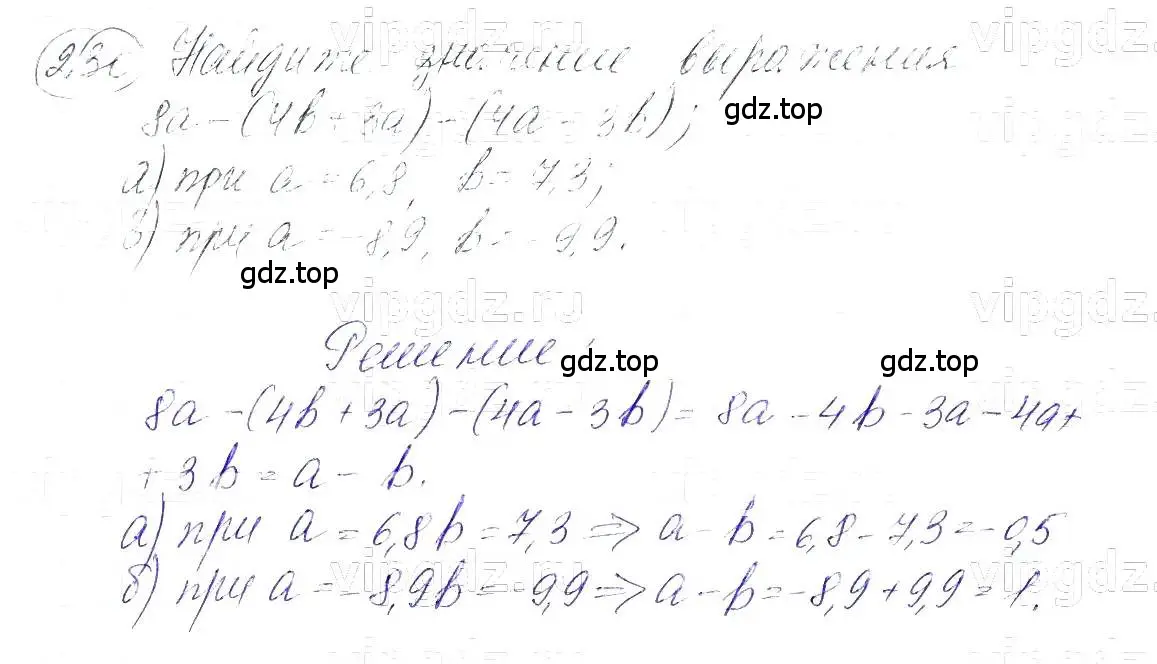 Найдите значение выражения
8a - (4b + 3a) - (4a - 3b);
а) при a = 6,8, b = 7,3;
б) при a = -8,9, b = -9,9.
Решение:
8a - (4b + 3a) - (4a - 3b) = 8a - 4b - 3a - 4a +
+ 3b = a - b.
а) при a = 6,8 b = 7,3 => a - b = 6,8 - 7,3 = -0,5
б) при a = -8,9 b = -9,9 => a - b = -8,9 + 9,9 = 1.
gdz.top
gdz.top
gdz.top
gdz.top
vipgdz.ru
vipgdz.ru
vipgdz.ru
vipgdz.ru
vipgdz.ru
vipgdz.ru